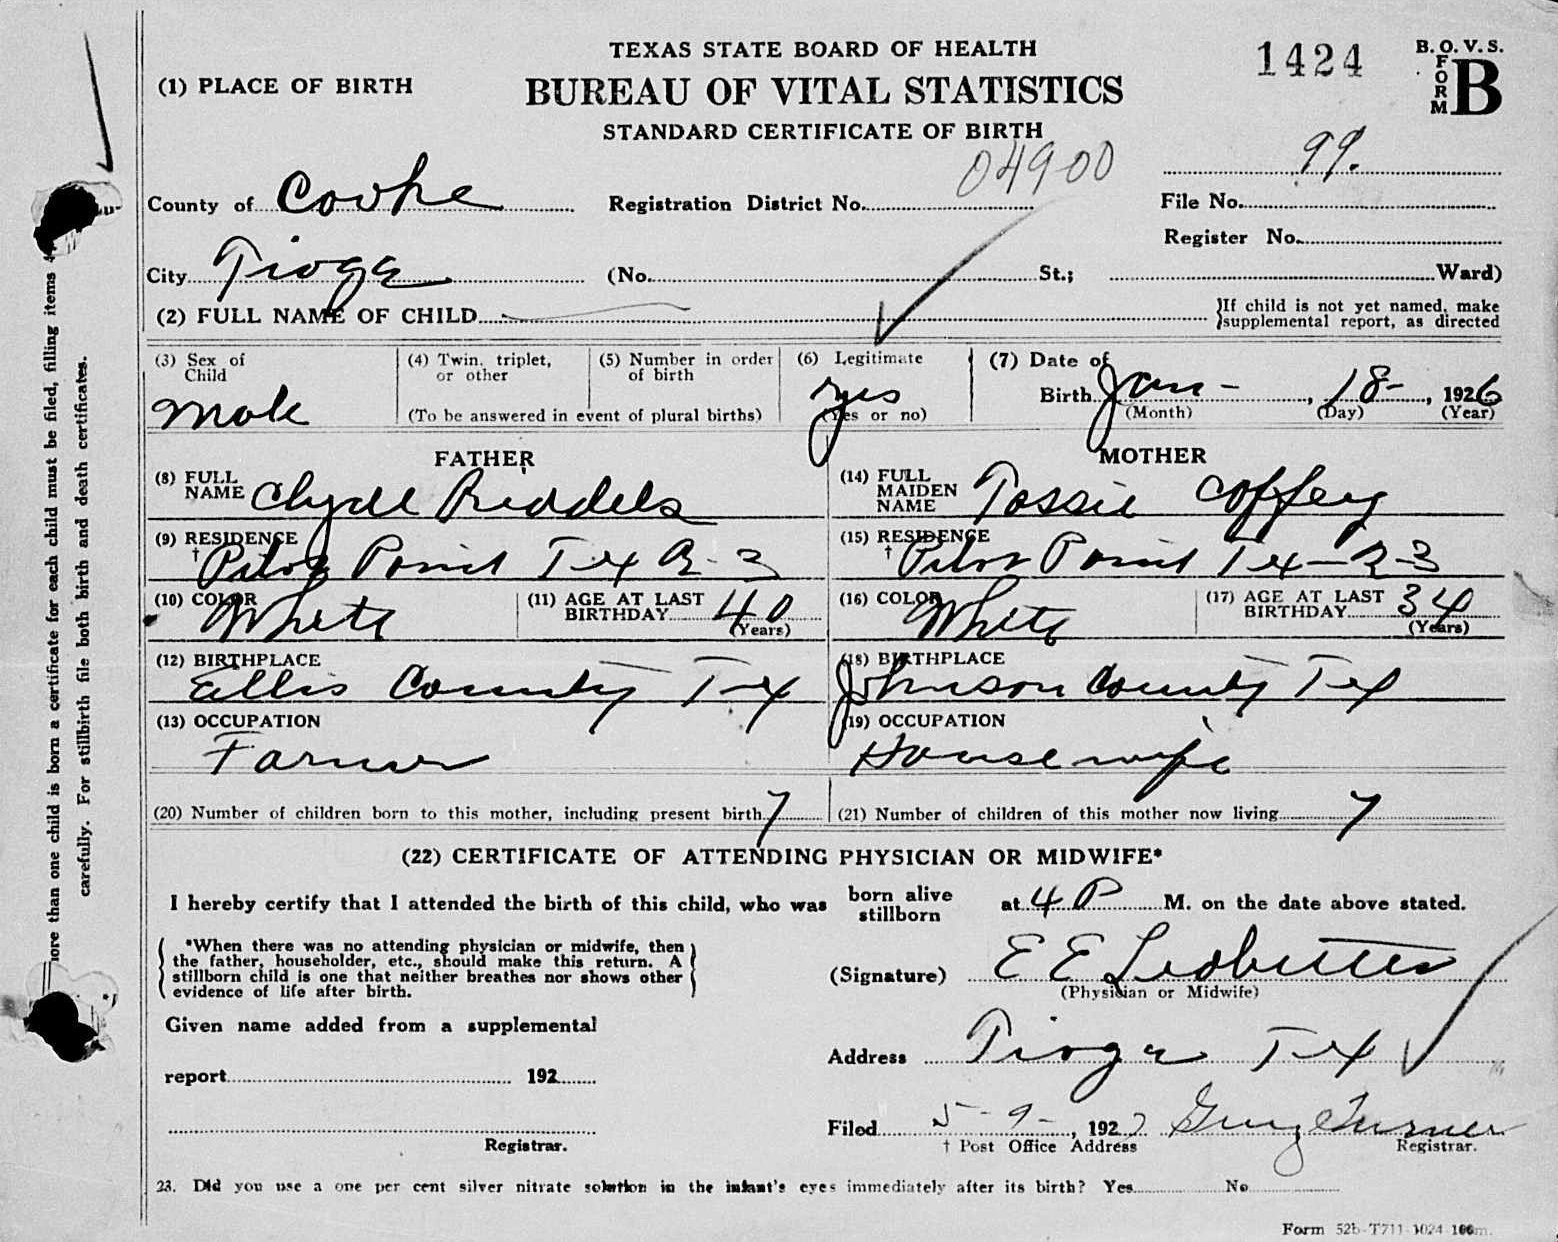 TEXAS STATE BOARD OF HEALTH
1424
B. O. V. S.
FORM B
(1) PLACE OF BIRTH
BUREAU OF VITAL STATISTICS
STANDARD CERTIFICATE OF BIRTH
99.
04900
County of Cooke Registration District No. File No.
Register No.
City Tioga (No. St.; Ward)
(2) FULL NAME OF CHILD }If child is not yet named, make
}supplemental report, as directed
(3) Sex of Child Male
(4) Twin, triplet, or other
(5) Number in order of birth
(To be answered in event of plural births)
(6) Legitimate yes
(Yes or no)
(7) Date of
Birth Jan - , 18- , 1926
(Month) (Day) (Year)
FATHER
(8) FULL NAME Clyde Riddels
(9) RESIDENCE
† Pilot Point Tex R-3
(10) COLOR White (11) AGE AT LAST BIRTHDAY 40
(Years)
(12) BIRTHPLACE
Ellis County Tex
(13) OCCUPATION
Farmer
MOTHER
(14) FULL MAIDEN NAME Tossie Coffey
(15) RESIDENCE
† Pilot Point Tex-R-3
(16) COLOR White (17) AGE AT LAST BIRTHDAY 34
(Years)
(18) BIRTHPLACE
Johnson County Tex
(19) OCCUPATION
Housewife
(20) Number of children born to this mother, including present birth 7
(21) Number of children of this mother now living 7
(22) CERTIFICATE OF ATTENDING PHYSICIAN OR MIDWIFE*
I hereby certify that I attended the birth of this child, who was born alive stillborn at 4 P M. on the date above stated.
*When there was no attending physician or midwife, then
the father, householder, etc., should make this return. A
stillborn child is one that neither breathes nor shows other
evidence of life after birth.
(Signature) E E Ledbetter
(Physician or Midwife)
Given name added from a supplemental
report 192
Registrar.
Address Tioga Tex
Filed 5-9-, 192 Turner
† Post Office Address Registrar.
23. Did you use a one per cent silver nitrate solution in the infant's eyes immediately after its birth? Yes No
Form 52b-T711-1024-100m.
more than one child is born a certificate for each child must be filed, filling items 4
carefully. For stillbirth file both birth and death certificates.